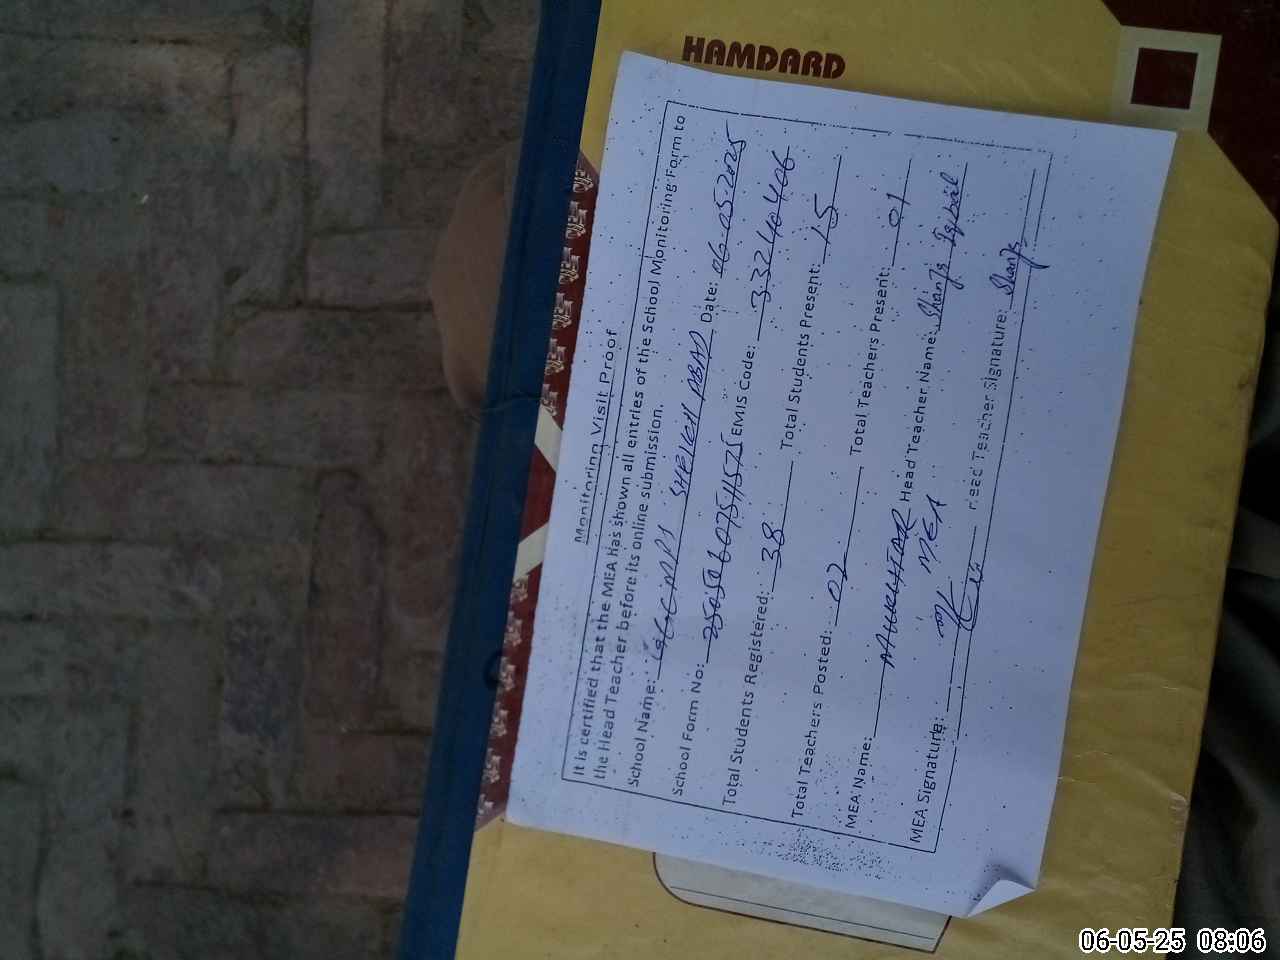 HAMDARD
Monitoring Visit Proof
It is certified that the MEA has shown all entries of the School Monitoring Form to
the Head Teacher before its online submission.
School Name: GGCMPS SHEIKH ABAD Date: 06-05-2025
School Form No: EMIS Code: 33240406
Total Students Registered: 38 Total Students Present: 15
Total Teachers Posted: 02 Total Teachers Present: 01
MEA Name: Head Teacher Name: Iqbal
MEA Signature: MEA Head Teacher Signature:
06-05-25 08:06